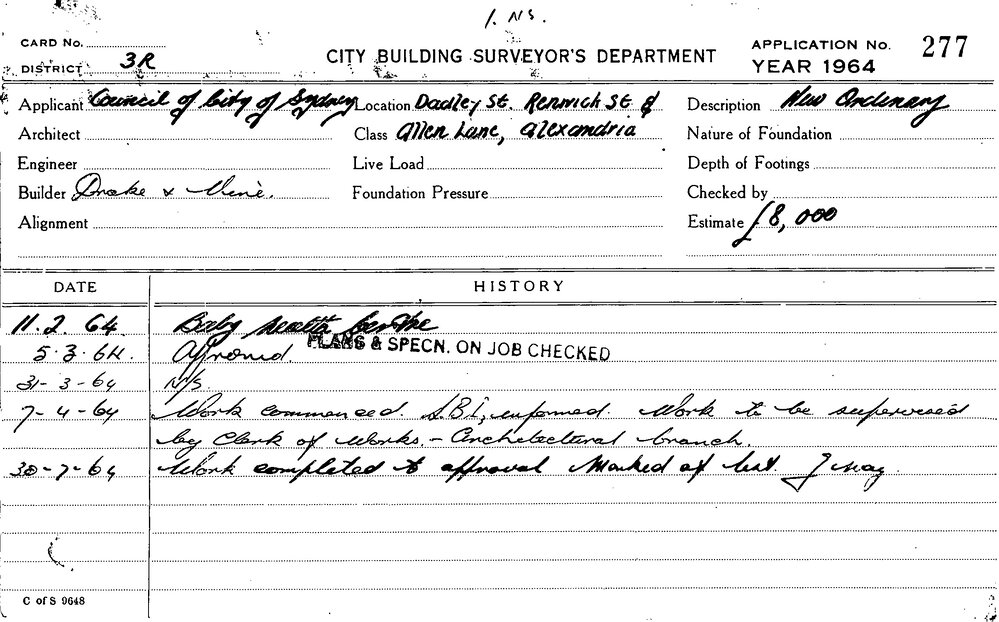 1. NS.
CARD No.
DISTRICT 3R
CITY BUILDING SURVEYOR'S DEPARTMENT
APPLICATION No. 277
YEAR 1964
Applicant Council of City of Sydney Location Dadley St. Renwick St &
Description New Ordinary
Architect
Class Allen Lane, Alexandria
Nature of Foundation
Engineer
Live Load
Depth of Footings
Builder Drake &
Foundation Pressure
Checked by
Alignment
Estimate £8,000
DATE HISTORY
11.2 64. Baby Health Centre
5.3.64. Approved PLANS & SPECN. ON JOB CHECKED
31-3-64 N/S
7-4-64 Work commenced. D.B.I. informed. Work to be supervised
by Clerk of Works. - Architectural branch.
30-7-64 Work completed to approval Marked of list.
C of S 9648